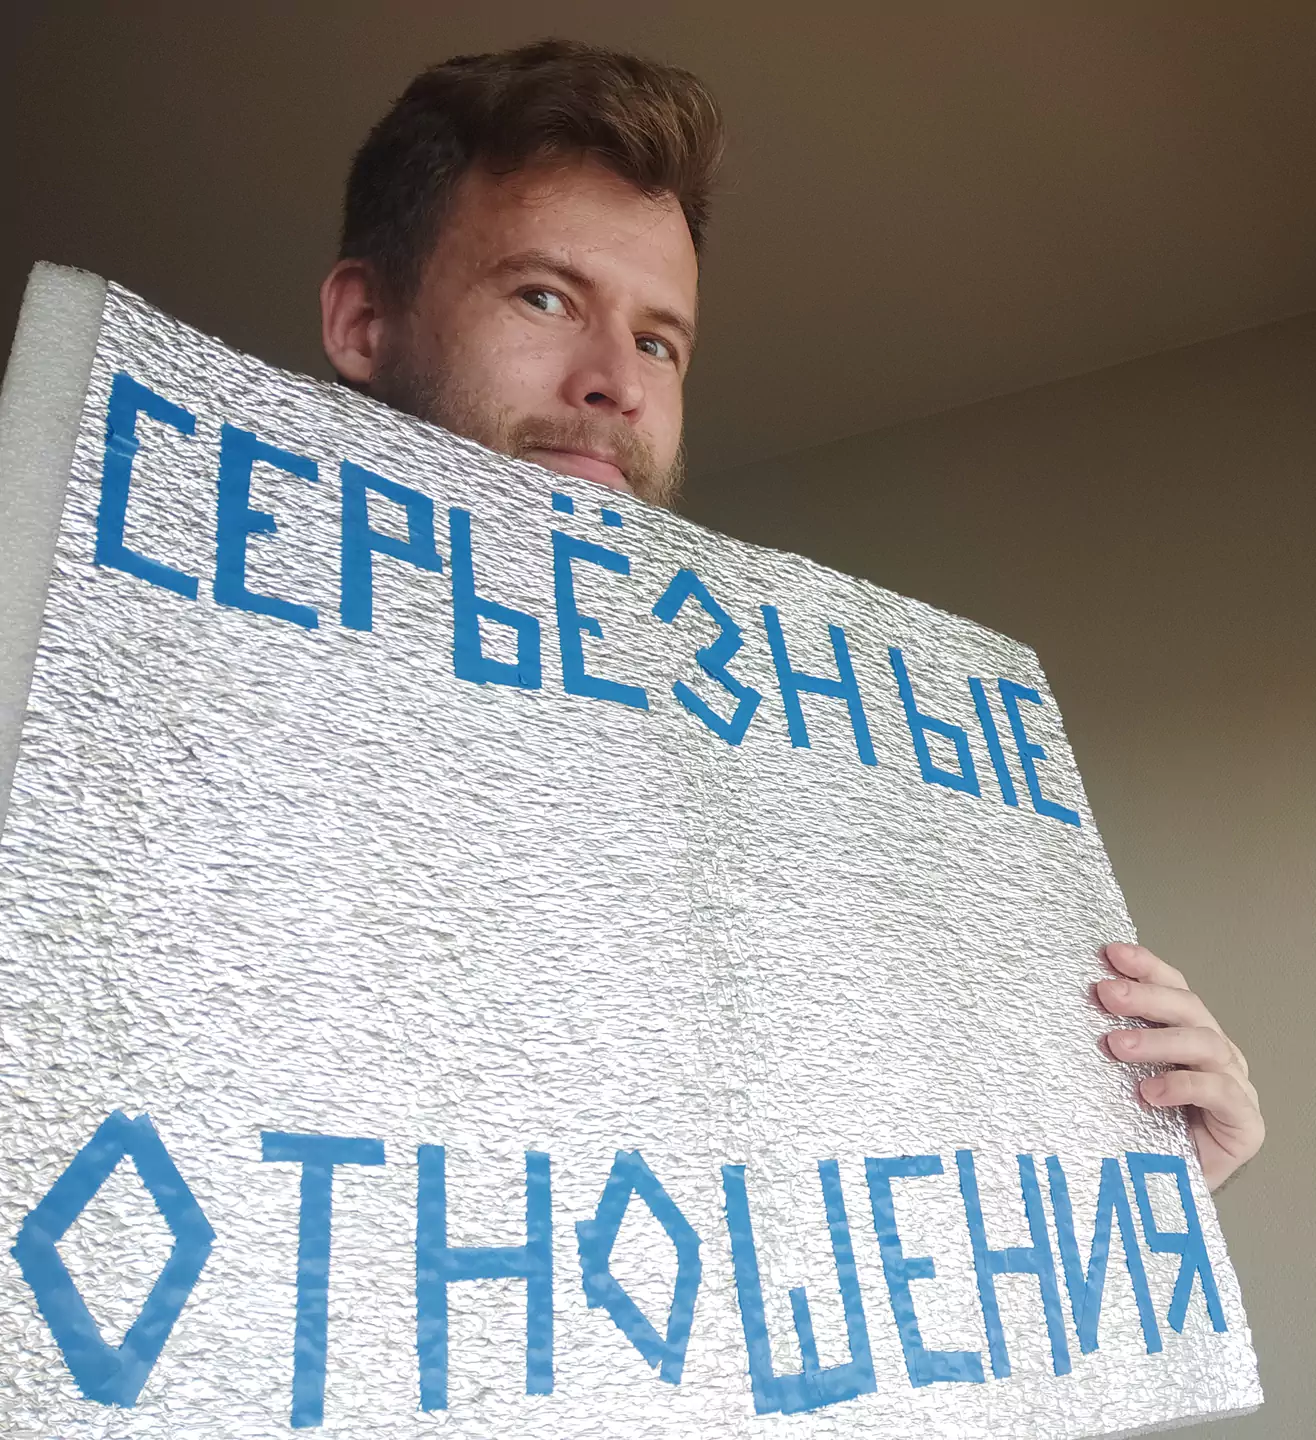 СЕРЬЁЗНЫЕ
ОТНОШЕНИЯ